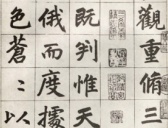 觀重脩三
既判惟天
俄而度據
色蒼〻以